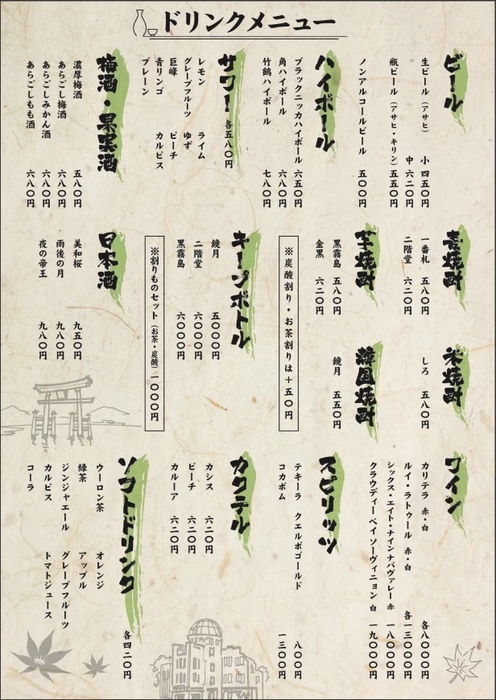 ドリンクメニュー
ビール
生ビール（アサヒ） 小 四五〇円
中 六二〇円
瓶ビール（アサヒ・キリン）五五〇円
ノンアルコールビール 五〇〇円
ハイボール
ブラックニッカハイボール 六五〇円
角ハイボール 六八〇円
竹鶴ハイボール 七八〇円
サワー 各五八〇円
レモン ライム
グレープフルーツ ゆず
巨峰 ピーチ
青リンゴ カルピス
プレーン
梅酒・果実酒
濃厚梅酒 五八〇円
あらごし梅酒 六八〇円
あらごしみかん酒 六八〇円
あらごしもも酒 六八〇円
麦焼酎
一番札 五八〇円
二階堂 六二〇円
芋焼酎
黒霧島 五八〇円
金黒 六二〇円
※炭酸割り・お茶割りは＋五〇円
キープボトル
鏡月 五〇〇〇円
二階堂 六〇〇〇円
黒霧島 六〇〇〇円
※割りものセット（お茶・炭酸）一〇〇〇円
日本酒
美和桜 九五〇円
雨後の月 九八〇円
夜の帝王 九八〇円
米焼酎
しろ 五八〇円
韓国焼酎
鏡月 五五〇円
ワイン
カリテラ 赤・白 各八〇〇〇円
ルイ・ラトゥール 赤・白 各一三〇〇〇円
シックス・エイト・ナイン ナパヴァレー 赤 一八〇〇〇円
クラウディー ベイ ソーヴィニョン 白 一九〇〇〇円
スピリッツ
テキーラ クエルボゴールド 八〇〇円
コカボム 一三〇〇円
カクテル
カシス 六二〇円
ピーチ 六二〇円
カルーア 六二〇円
ソフトドリンク
各四二〇円
ウーロン茶 オレンジ
緑茶 アップル
ジンジャエール グレープフルーツ
カルピス トマトジュース
コーラ